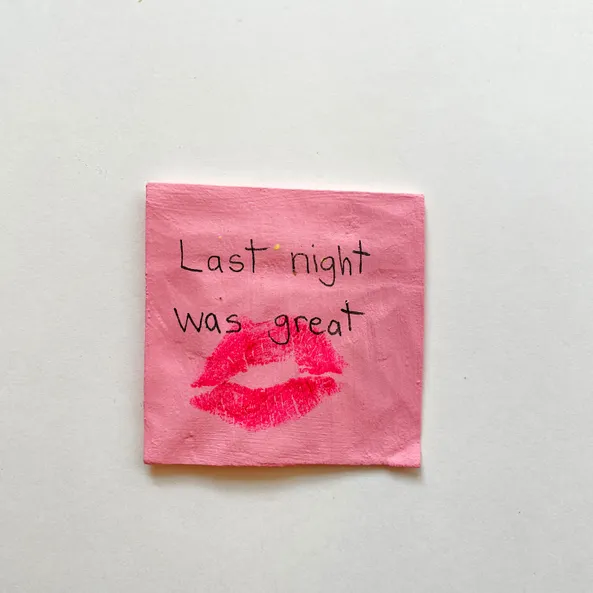 Last night
was great